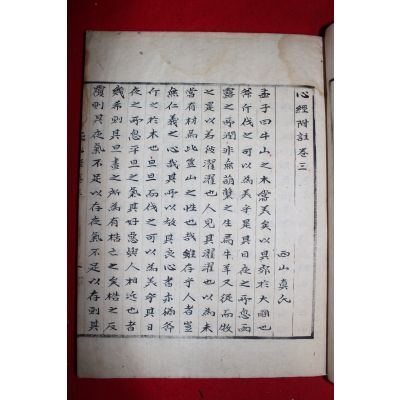 心經附註卷三
西山真氏
孟子曰牛山之木嘗美矣以其郊於大國也
斧斤伐之可以為美乎是其日夜之所息雨
露之所潤非無萌蘖之生焉牛羊又從而牧
之是以若彼濯濯也人見其濯濯也以為未
嘗有材焉此豈山之性也哉雖存乎人者豈
無仁義之心哉其所以放其良心者亦猶斧
斤之於木也旦旦而伐之可以為美乎其日
夜之所息平旦之氣其好惡與人相近也者
幾希則其旦晝之所為有梏亡之矣梏之反
覆則其夜氣不足以存夜氣不足以存則其